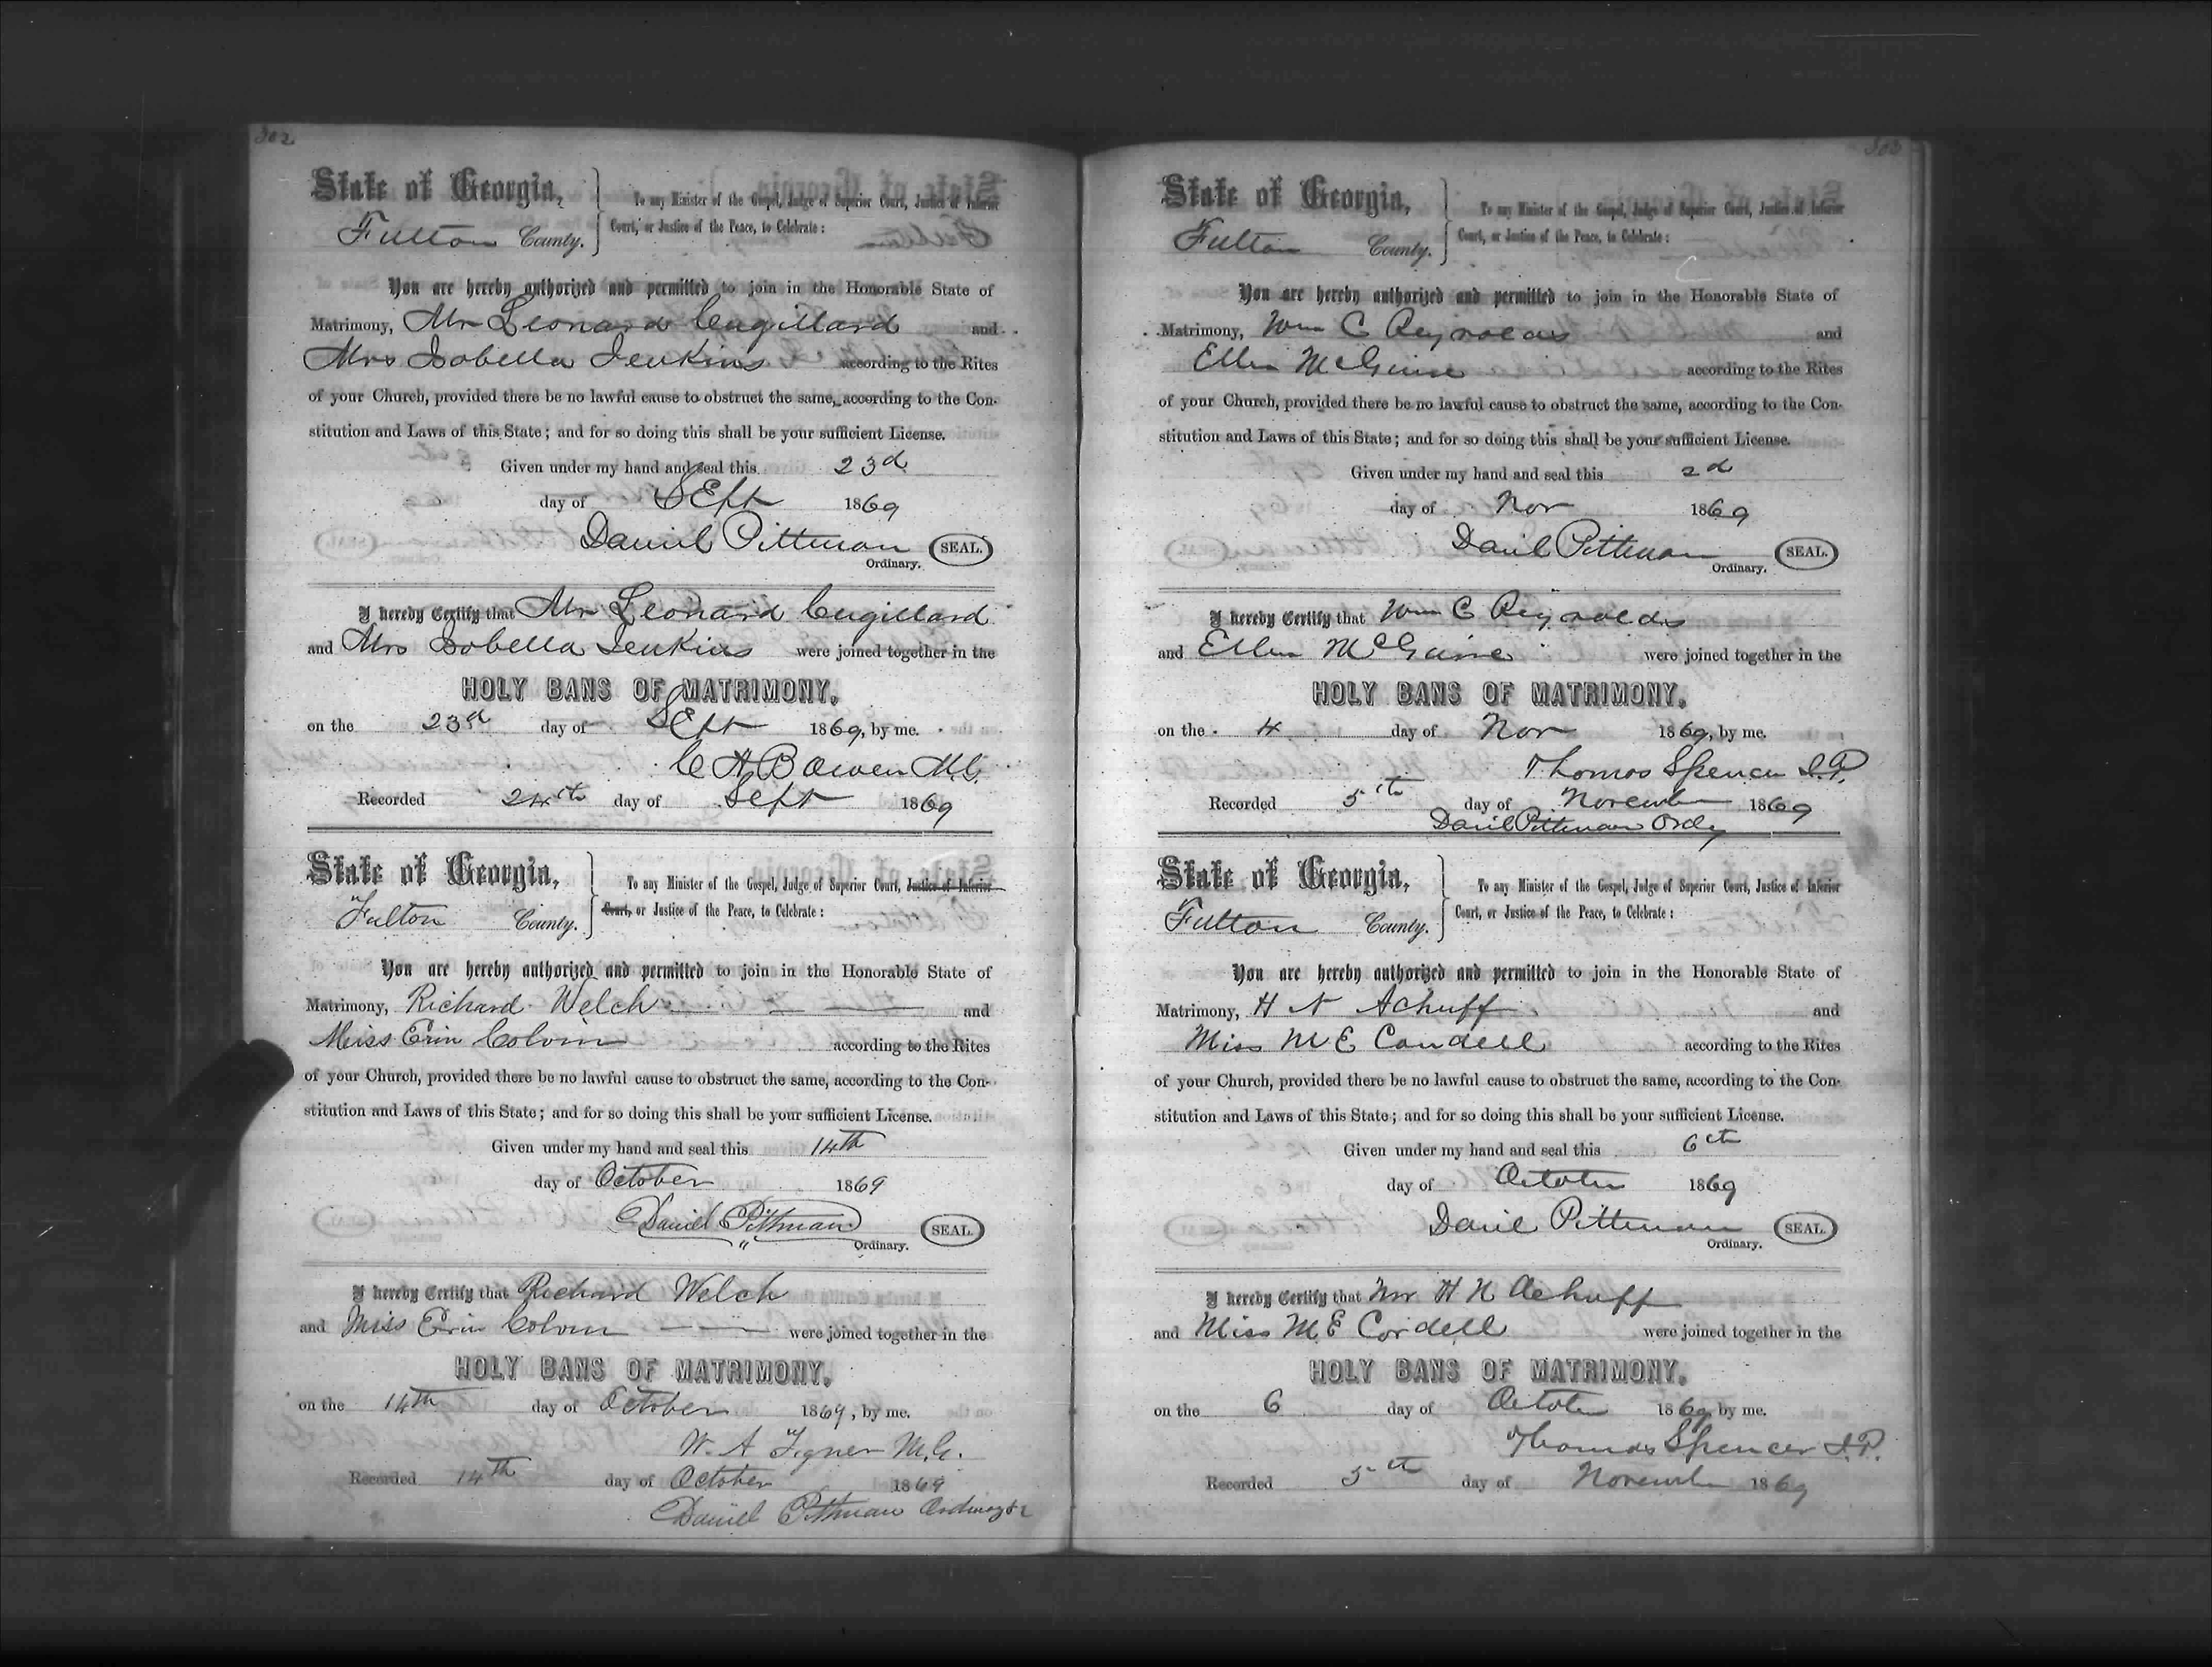 302
State of Georgia,
Fulton County.
To any Minister of the Gospel, Judge of Superior Court, Justice of Inferior
Court, or Justice of the Peace, to Celebrate:
You are hereby authorized and permitted to join in the Honorable State of
Matrimony, Mr Leonard Cugillard and
Mrs Isobella Jenkins according to the Rites
of your Church, provided there be no lawful cause to obstruct the same, according to the Con-
stitution and Laws of this State; and for so doing this shall be your sufficient License.
Given under my hand and seal this 23d
day of Sept 1869
Daniel Pittman SEAL.
Ordinary.
I hereby Certify that Mr Leonard Cugillard
and Mrs Isobella Jenkins were joined together in the
HOLY BANS OF MATRIMONY,
on the 23d day of Sept 1869, by me.
C H Bowen M.G.
Recorded 24th day of Sept 1869
State of Georgia,
Fulton County.
To any Minister of the Gospel, Judge of Superior Court, Justice of Inferior
Court, or Justice of the Peace, to Celebrate:
You are hereby authorized and permitted to join in the Honorable State of
Matrimony, Richard Welch and
Miss Erin Colvin according to the Rites
of your Church, provided there be no lawful cause to obstruct the same, according to the Con-
stitution and Laws of this State; and for so doing this shall be your sufficient License.
Given under my hand and seal this 14th
day of October 1869
Daniel Pittman SEAL.
Ordinary.
I hereby Certify that Richard Welch
and Miss Erin Colvin were joined together in the
HOLY BANS OF MATRIMONY,
on the 14th day of October 1869, by me.
W. A Tigner M.G.
Recorded 14th day of October 1869
Daniel Pittman
303
State of Georgia,
Fulton County.
To any Minister of the Gospel, Judge of Superior Court, Justice of Inferior
Court, or Justice of the Peace, to Celebrate:
You are hereby authorized and permitted to join in the Honorable State of
Matrimony, Wm C Reynolds and
Ellen McGuire according to the Rites
of your Church, provided there be no lawful cause to obstruct the same, according to the Con-
stitution and Laws of this State; and for so doing this shall be your sufficient License.
Given under my hand and seal this 2d
day of Nov 1869
Daniel Pittman SEAL.
Ordinary.
I hereby Certify that Wm C Reynolds
and Ellen McGuire were joined together in the
HOLY BANS OF MATRIMONY,
on the 4 day of Nov 1869, by me.
Thomas Spencer J.P.
Recorded 5th day of November 1869
Daniel Pittman Ordy
State of Georgia,
Fulton County.
To any Minister of the Gospel, Judge of Superior Court, Justice of Inferior
Court, or Justice of the Peace, to Celebrate:
You are hereby authorized and permitted to join in the Honorable State of
Matrimony, H N Achuff and
Miss M E Caudell according to the Rites
of your Church, provided there be no lawful cause to obstruct the same, according to the Con-
stitution and Laws of this State; and for so doing this shall be your sufficient License.
Given under my hand and seal this 6th
day of October 1869
Daniel Pittman SEAL.
Ordinary.
I hereby Certify that Mr H N Achuff
and Miss M E Cordell were joined together in the
HOLY BANS OF MATRIMONY,
on the 6 day of October 1869, by me.
Thomas Spencer J.P.
Recorded 5th day of November 1869